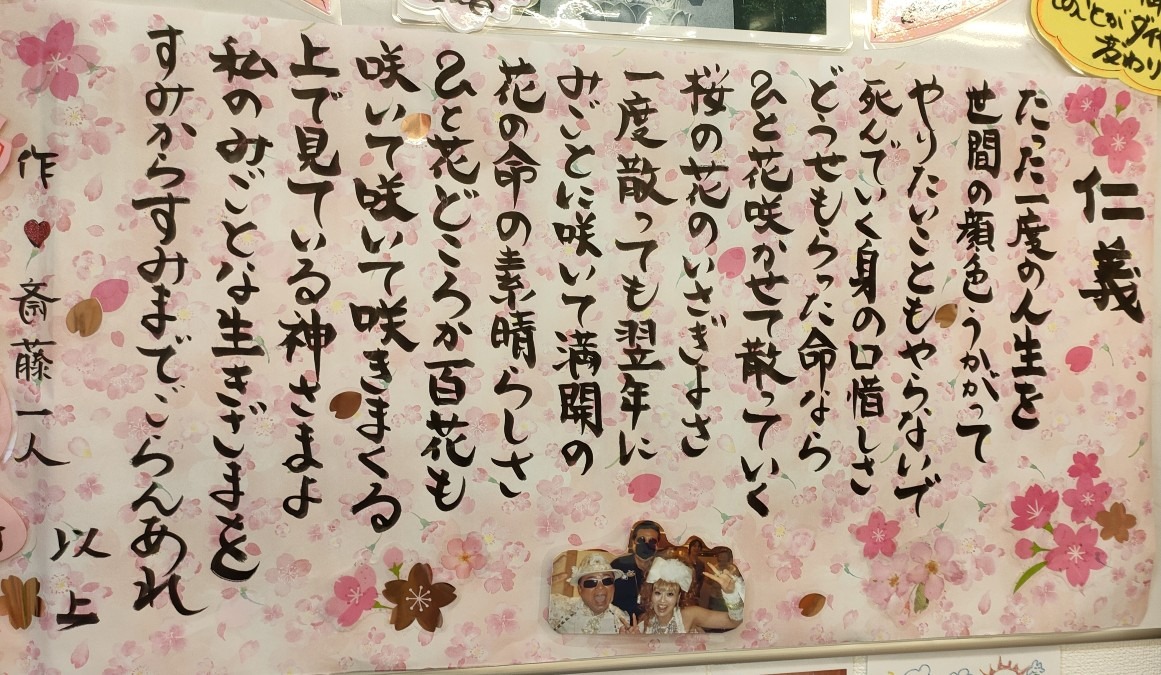 仁義
たった一度の人生を
世間の顔色うかがって
やりたいこともやらないで
死んでいく身の口惜しさ
どうせもらった命なら
ひと花咲かせて散っていく
桜の花のいさぎよさ
一度散っても翌年に
みごとに咲いて満開の
花の命の素晴らしさ
ひと花どころか百花も
咲いて咲いて咲きまくる
上で見ている神さまよ
私のみごとな生きざまを
すみからすみまでごらんあれ
作 ♥ 斎藤一人
以上